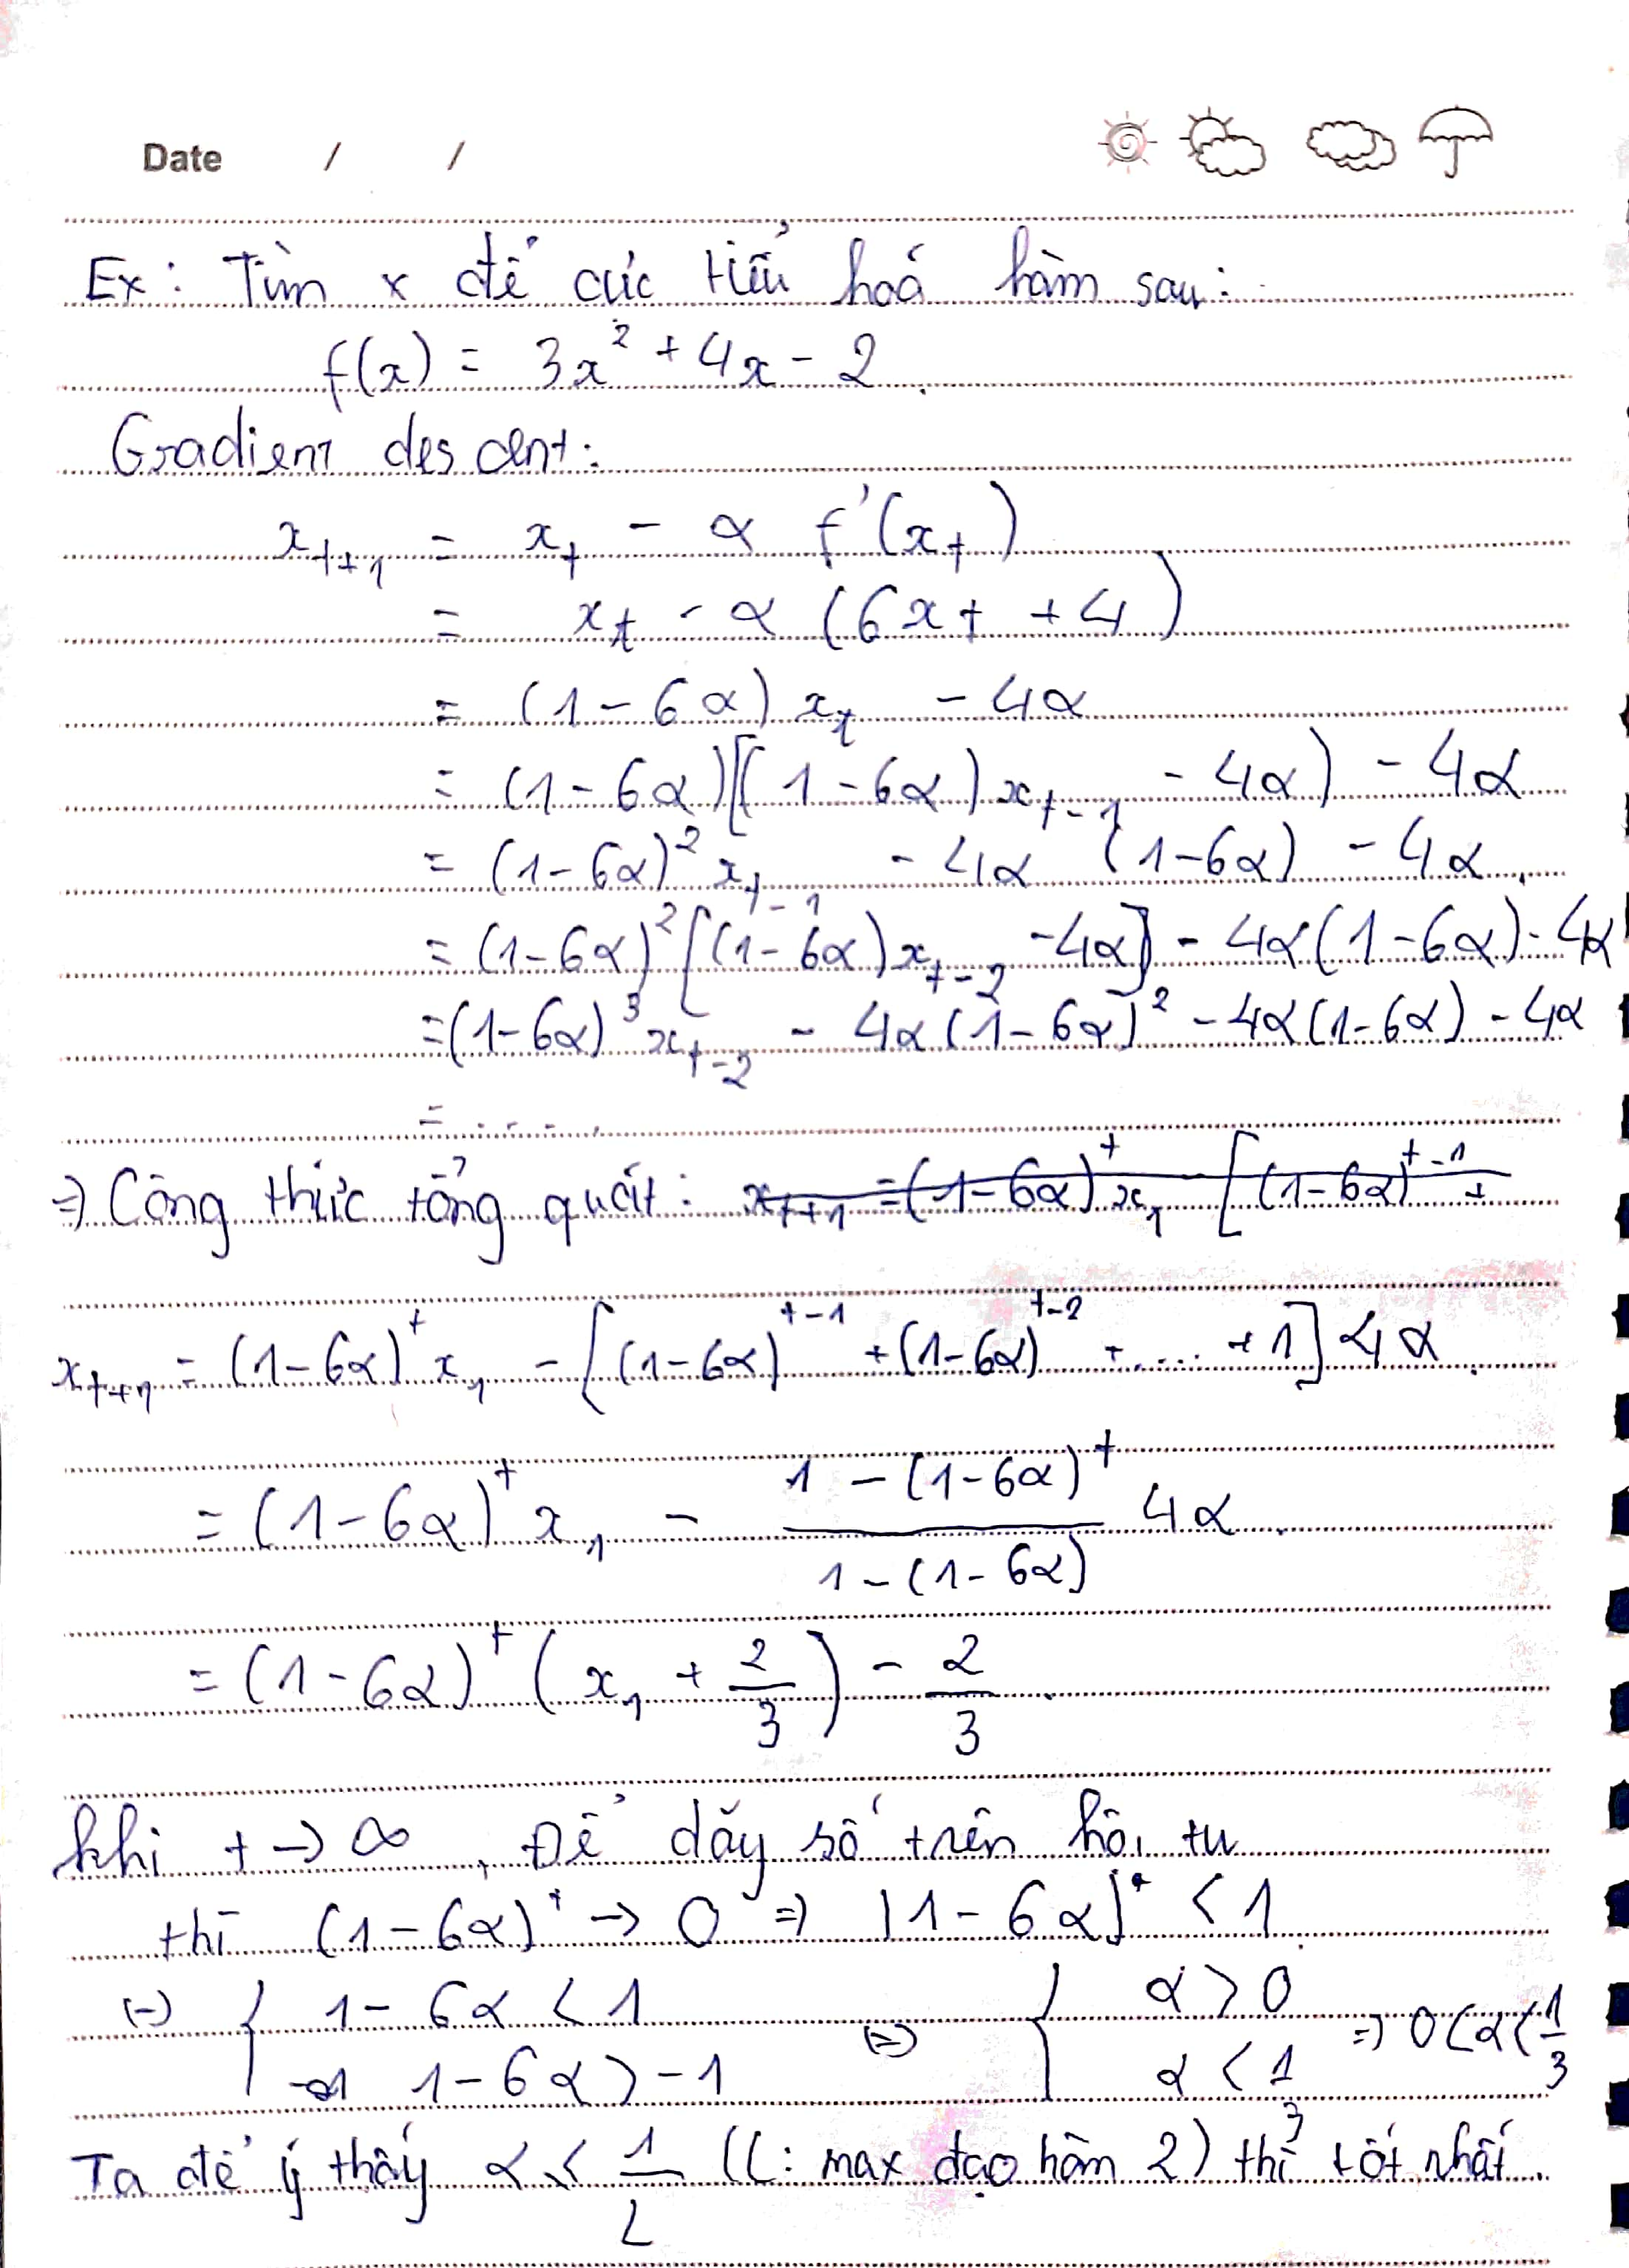 Date / /
Ex: Tìm x để cực tiểu hoá hàm sau:
f(x) = 3x² + 4x - 2.
Gradient descent:
x_{t+1} = x_t - α f'(x_t)
= x_t - α (6x_t + 4)
= (1 - 6α) x_t - 4α
= (1 - 6α)[(1 - 6α) x_{t-1} - 4α) - 4α
= (1-6α)² x_{t-1} - 4α (1-6α) - 4α.
= (1-6α)² [(1-6α) x_{t-2} - 4α] - 4α(1-6α) - 4α
= (1-6α)³ x_{t-2} - 4α(1-6α)² - 4α(1-6α) - 4α
= .....
⇒) Công thức tổng quát: x_{t+1} = (1-6α)^t x_1 [(1-6α)^{t-1} +
x_{t+1} = (1-6α)^t x_1 - [(1-6α)^{t-1} + (1-6α)^{t-2} + .... + 1] 4α.
= (1-6α)^t x_1 - \frac{1-(1-6α)^t}{1-(1-6α)} 4α.
= (1-6α)^t (x_1 + \frac{2}{3}) - \frac{2}{3}.
khi t → ∞, Để dãy số trên hội tụ
thì (1-6α)^t → 0 ⇒ |1-6α| < 1.
(=) { 1 - 6α < 1 (=) { α > 0 ⇒ 0 < α < \frac{1}{3}
1 - 6α > -1 α < \frac{1}{3}
Ta để ý thấy α < \frac{1}{L} (L: max đạo hàm 2) thì tốt nhất.